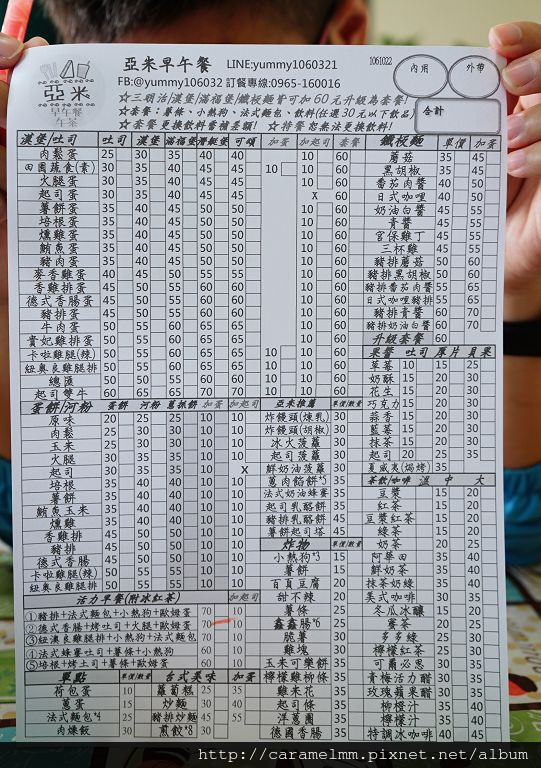 亞米
早午餐
午茶
亞米早午餐 LINE:yummy1060321
1061022
FB:@yummy106032 訂餐專線:0965-160016
內用
外帶
合計
☆三明治/漢堡/滿福堡/鐵板麵皆可加60元升級為套餐!
☆套餐:薯條、小熱狗、法式麵包、飲料(任選30元以下飲品)
☆套餐更換飲料需補差額! ☆特餐恕無法更換飲料!
漢堡/吐司 吐司 漢堡 滿福堡 潛艇堡 可頌 加蛋 加起司 套餐
肉鬆蛋 25 30 35 40 40 10 60
田園蔬食(素) 30 35 40 45 45 10 10 60
火腿蛋 30 35 40 45 45 10 60
起司蛋 30 35 40 45 45 X 60
薯餅蛋 35 40 45 50 50 10 60
培根蛋 35 40 45 50 50 10 60
燻雞蛋 35 40 45 50 50 10 60
鮪魚蛋 35 40 45 50 50 10 60
豬肉蛋 35 40 45 50 50 10 60
麥香雞蛋 40 45 50 55 55 10 60
香雞排蛋 45 50 55 60 60 10 60
德式香腸蛋 45 50 55 60 60 10 60
豬排蛋 45 50 55 60 60 10 60
牛肉蛋 50 55 60 65 65 10 60
貴妃雞排蛋 50 55 60 65 65 10 60
卡啦雞腿(辣) 50 50 55 60 65 10 10 60
紐奧良雞腿排 50 50 55 60 65 10 10 60
總匯 50 50 55 60 65 10 10 60
起司雙牛 60 60 65 70 70 10 10 60
鐵板麵 單價 加蛋
蘑菇 35 45
黑胡椒 35 45
番茄肉醬 40 50
日式咖哩 40 50
奶油白醬 45 55
青醬 45 55
宮保雞丁 45 55
三杯雞 45 55
豬排蘑菇 50 60
豬排黑胡椒 50 60
豬排番茄肉醬 55 65
日式咖哩豬排 55 65
豬排青醬 60 70
豬排奶油白醬 60 70
升級套餐 60
果醬 吐司 厚片 貝果
草莓 10 15 25
奶酥 15 20 30
花生 15 20 30
巧克力 15 20 30
蒜香 15 20 30
藍莓 15 20 30
抹茶 15 20 30
起司 20 25 35
夏威夷(焗烤) 35
蛋餅/河粉 蛋餅 河粉 蔥抓餅 加蛋 加起司
原味 20 25 30 10 10
肉鬆 25 30 35 10 10
玉米 25 30 35 10 10
火腿 30 35 35 10 10
起司 30 35 35 10 X
培根 35 40 40 10 10
薯餅 35 40 40 10 10
鮪魚玉米 35 40 40 10 10
燻雞 35 40 40 10 10
香雞排 45 50 50 10 10
豬排 45 50 50 10 10
德式香腸 45 50 50 10 10
卡啦雞腿(辣) 50 55 55 10 10
紐奧良雞腿排 50 55 55 10 10
亞米推薦 單價/數量
炸饅頭(煉乳) 30
炸饅頭(胡椒) 30
冰火菠蘿 30
起司菠蘿 30
鮮奶油菠蘿 30
蔥肉餡餅*5 35
法式奶油蜂蜜 35
起司乳酪餅 35
豬排乳酪餅 45
薯餅起司塔 45
炸物 單價/數量
小熱狗*3 15
薯餅 15
百頁豆腐 20
甜不辣 20
薯條 25
鑫鑫腸*6 25
脆薯 30
雞塊 30
玉米可樂餅 30
檸檬雞柳條 35
雞米花 35
起司條 35
洋蔥圈 35
德國香腸 35
茶飲/咖啡 溫 中 大
豆漿 15 20
紅茶 15 20
豆漿紅茶 15 20
綠茶 15 20
奶茶 20 25
阿華田 35 40
鮮奶茶 35 40
抹茶奶綠 35 40
美式咖啡 30 35
冬瓜冰釀 15 20
蜜茶 20 25
多多綠 25 30
檸檬紅茶 25 30
可爾必思 30 35
青梅活力醋 30 35
玫瑰蘋果醋 30 35
柳橙汁 35 40
檸檬汁 35 40
特調冰咖啡 40 45
活力早餐(附冰紅茶) 加起司
①豬排+法式麵包+小熱狗+歐姆蛋 70 10
②德式香腸+烤吐司+火腿+歐姆蛋 70 10
③紐奧良雞腿排+小熱狗+法式麵包 70 10
④法式蜂蜜吐司+薯條+歐姆蛋 60 10
⑤培根+烤土司+薯條+歐姆蛋 60 10
單點 單價/數量 台式美味 加蛋
荷包蛋 10 蘿蔔糕 25 35
蔥蛋 15 炒麵 30 40
法式麵包*4 25 豬排炒麵 45 55
肉燥飯 30 煎餃*8 30
http://caramelmm.pixnet.net/album